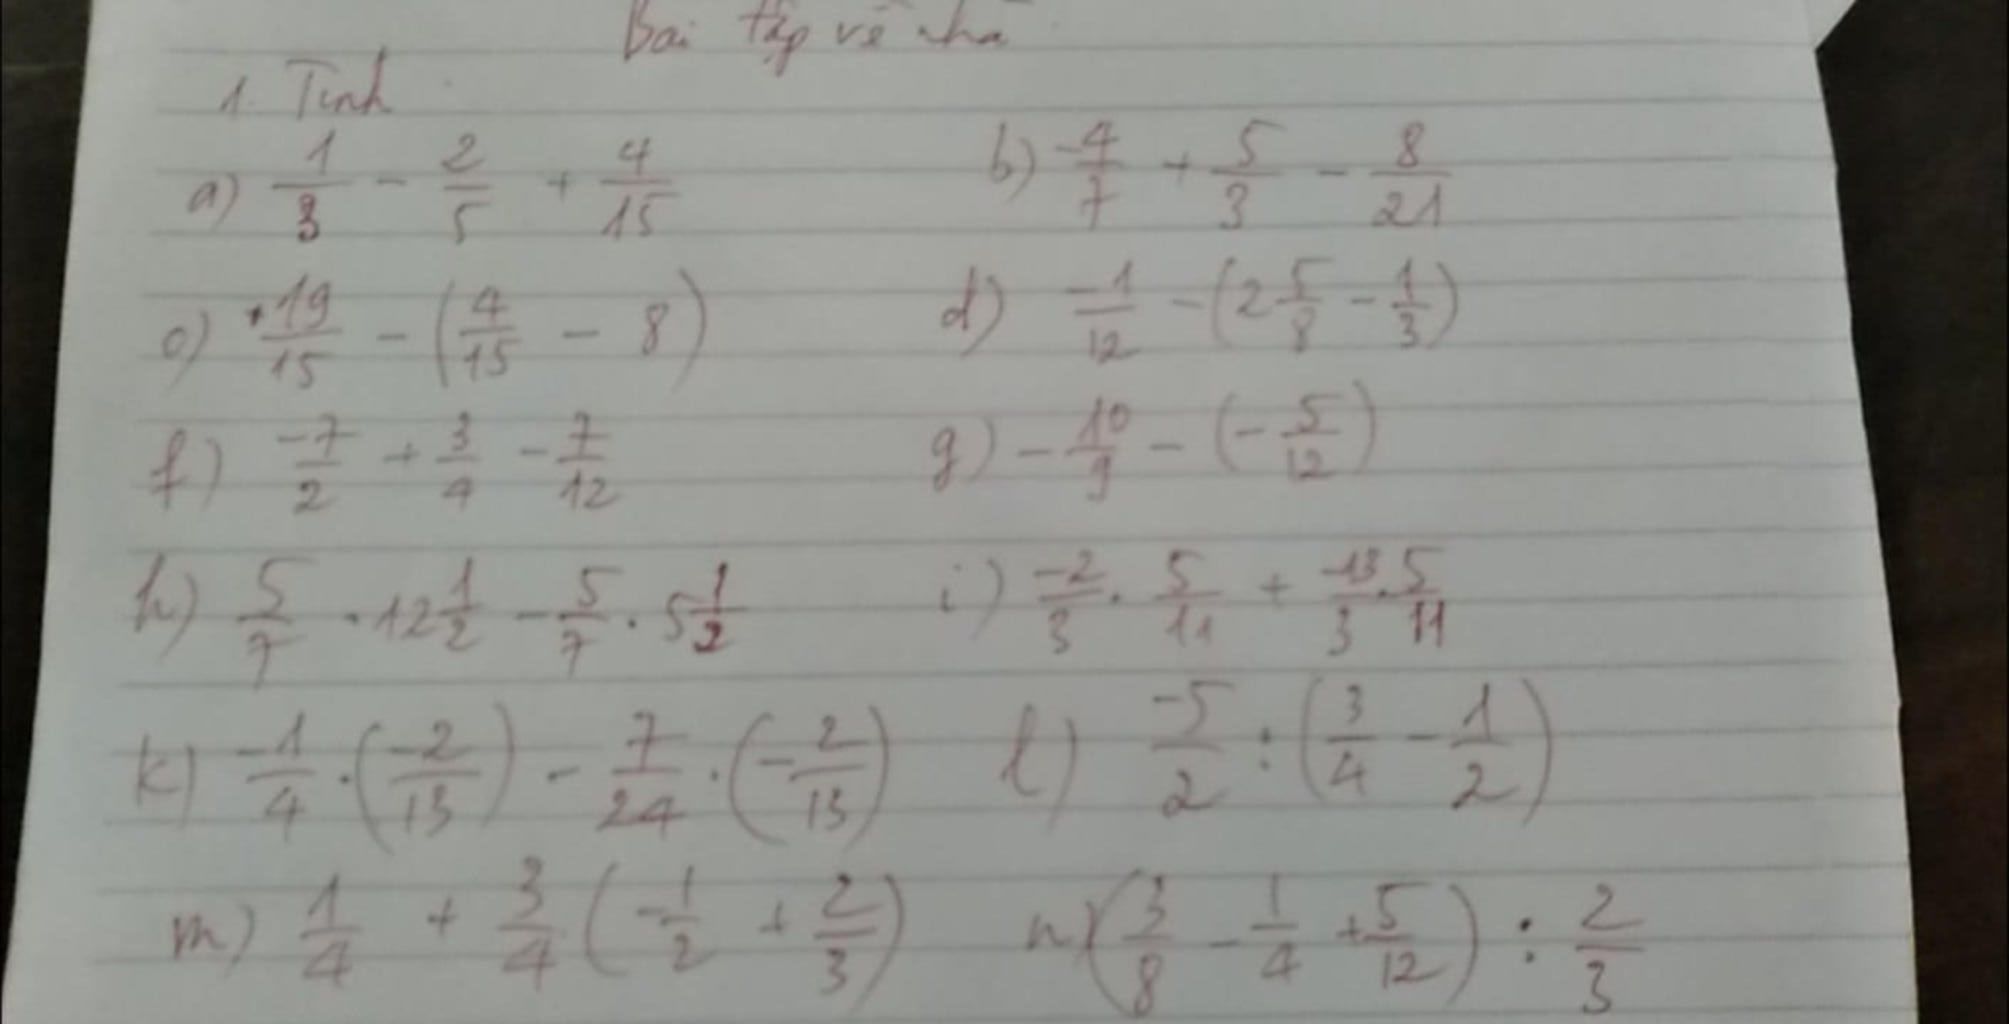 Bài tập về nhà
1. Tính
a) 1/3 - 2/5 + 4/15 b) -4/7 + 5/3 - 8/21
c) 19/15 - (4/15 - 8) d) -1/12 - (2 5/8 - 1/3)
f) -7/2 + 3/4 - 7/12 g) - 10/9 - (- 5/12)
h) 5/7 . 12 1/2 - 5/7 . 5 1/2 i) -2/3 . 5/11 + -13/3 . 5/11
k) -1/4 . (-2/13) - 7/24 . (- 2/13) l) -5/2 : (3/4 - 1/2)
m) 1/4 + 3/4 (-1/2 + 2/3) n) (3/8 - 1/4 + 5/12) : 2/3